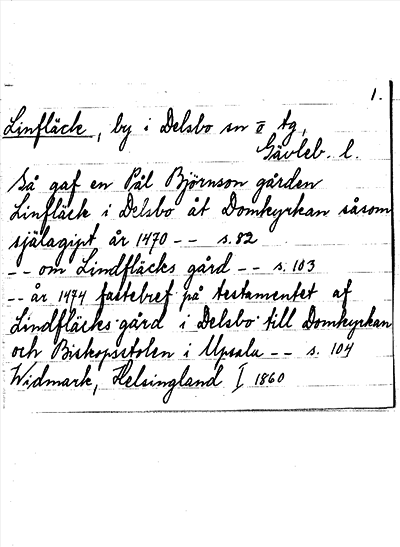 1.
Linfläck, by i Delsbo sn II tg,
Gävleb. l.
Så gaf en Pål Björnson gården
Linfläck i Delsbo åt Domkyrkan såsom
själagipt år 1470 -- s. 82
-- om Lindfläcks gård -- s. 103
-- år 1474 fastebref på testamentet af
Lindfläcks gård i Delsbo till Domkyrkan
och Biskopsstolen i Upsala -- s. 104
Widmark, Helsingland I 1860